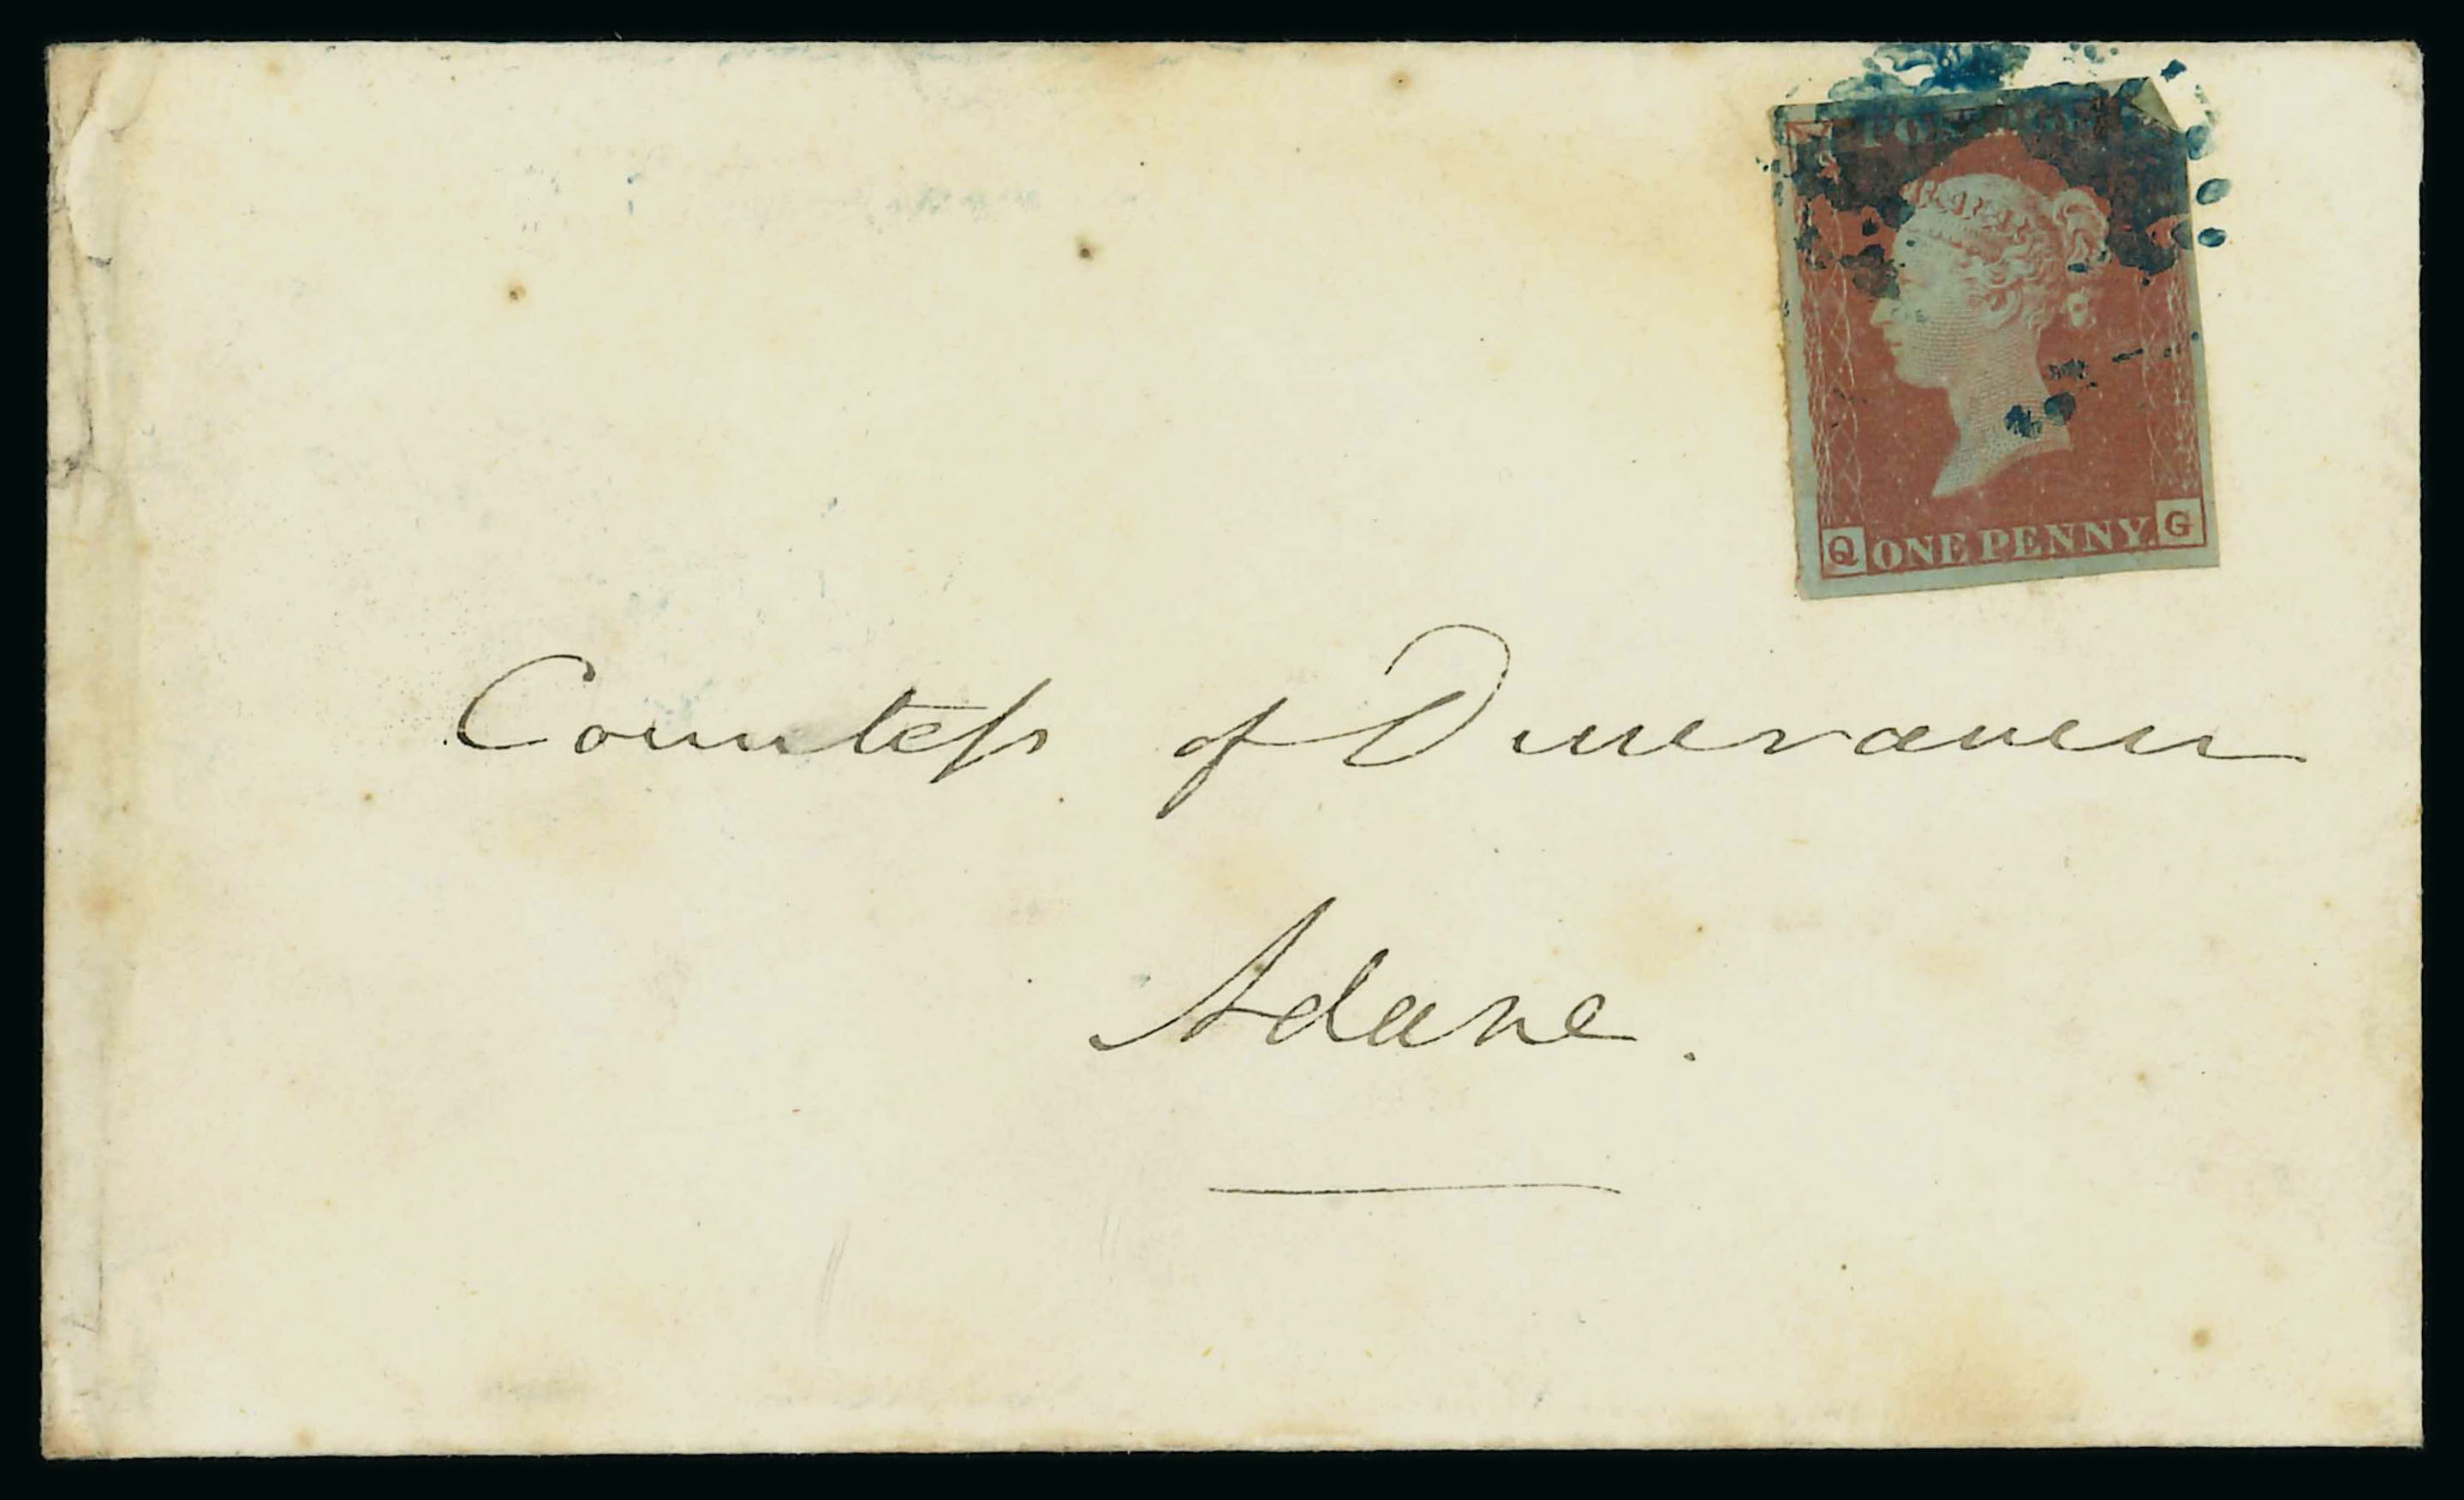 POSTAGE
Q ONE PENNY. G
Countess of Dunraven
Adare.